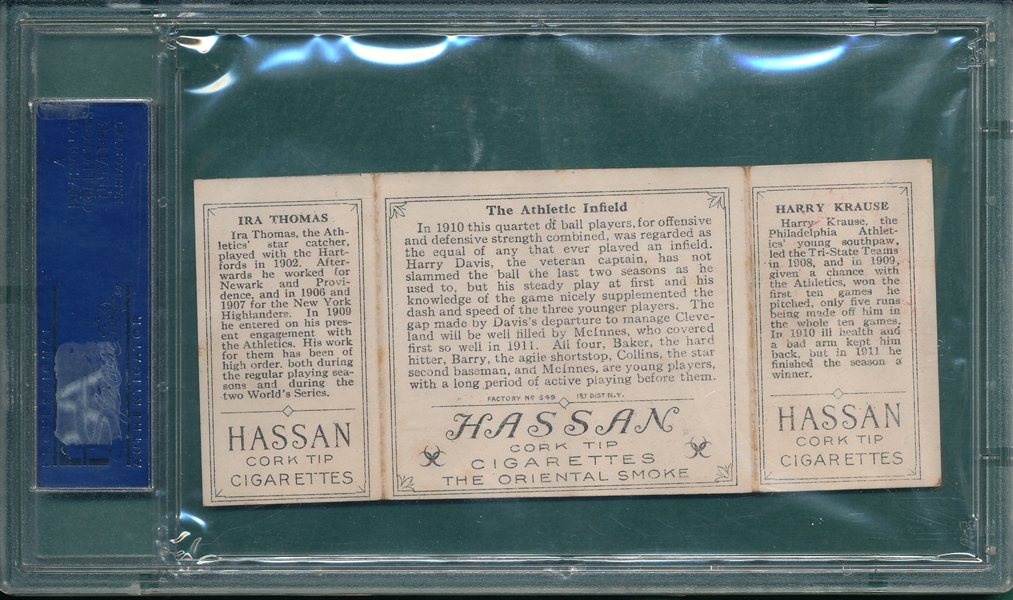 IRA THOMAS
Ira Thomas, the Ath-
letics' star catcher,
played with the Hart-
fords in 1902. After-
wards he worked for
Newark and Provi-
dence, and in 1906 and
1907 for the New York
Highlanders. In 1909
he entered on his pres-
ent engagement with
the Athletics. His work
for them has been of
high order, both during
the regular playing sea-
sons and during the
two World's Series.
HASSAN
CORK TIP
CIGARETTES
The Athletic Infield
In 1910 this quartet of ball players, for offensive
and defensive strength combined, was regarded as
the equal of any that ever played an infield.
Harry Davis, the veteran captain, has not
slammed the ball the last two seasons as he
used to, but his steady play at first and his
knowledge of the game nicely supplemented the
dash and speed of the three younger players. The
gap made by Davis's departure to manage Cleve-
land will be well filled by McInnes, who covered
first so well in 1911. All four, Baker, the hard
hitter, Barry, the agile shortstop, Collins, the star
second baseman, and McInnes, are young players,
with a long period of active playing before them.
FACTORY No 649 1ST DIST N.Y.
HASSAN
CORK TIP
CIGARETTES
THE ORIENTAL SMOKE
HARRY KRAUSE
Harry Krause, the
Philadelphia Athlet-
ics' young southpaw,
led the Tri-State Teams
in 1908, and in 1909,
given a chance with
the Athletics, won the
first ten games he
pitched, only five runs
being made off him in
the whole ten games.
In 1910 ill health and
a bad arm kept him
back, but in 1911 he
finished the season a
winner.
HASSAN
CORK TIP
CIGARETTES